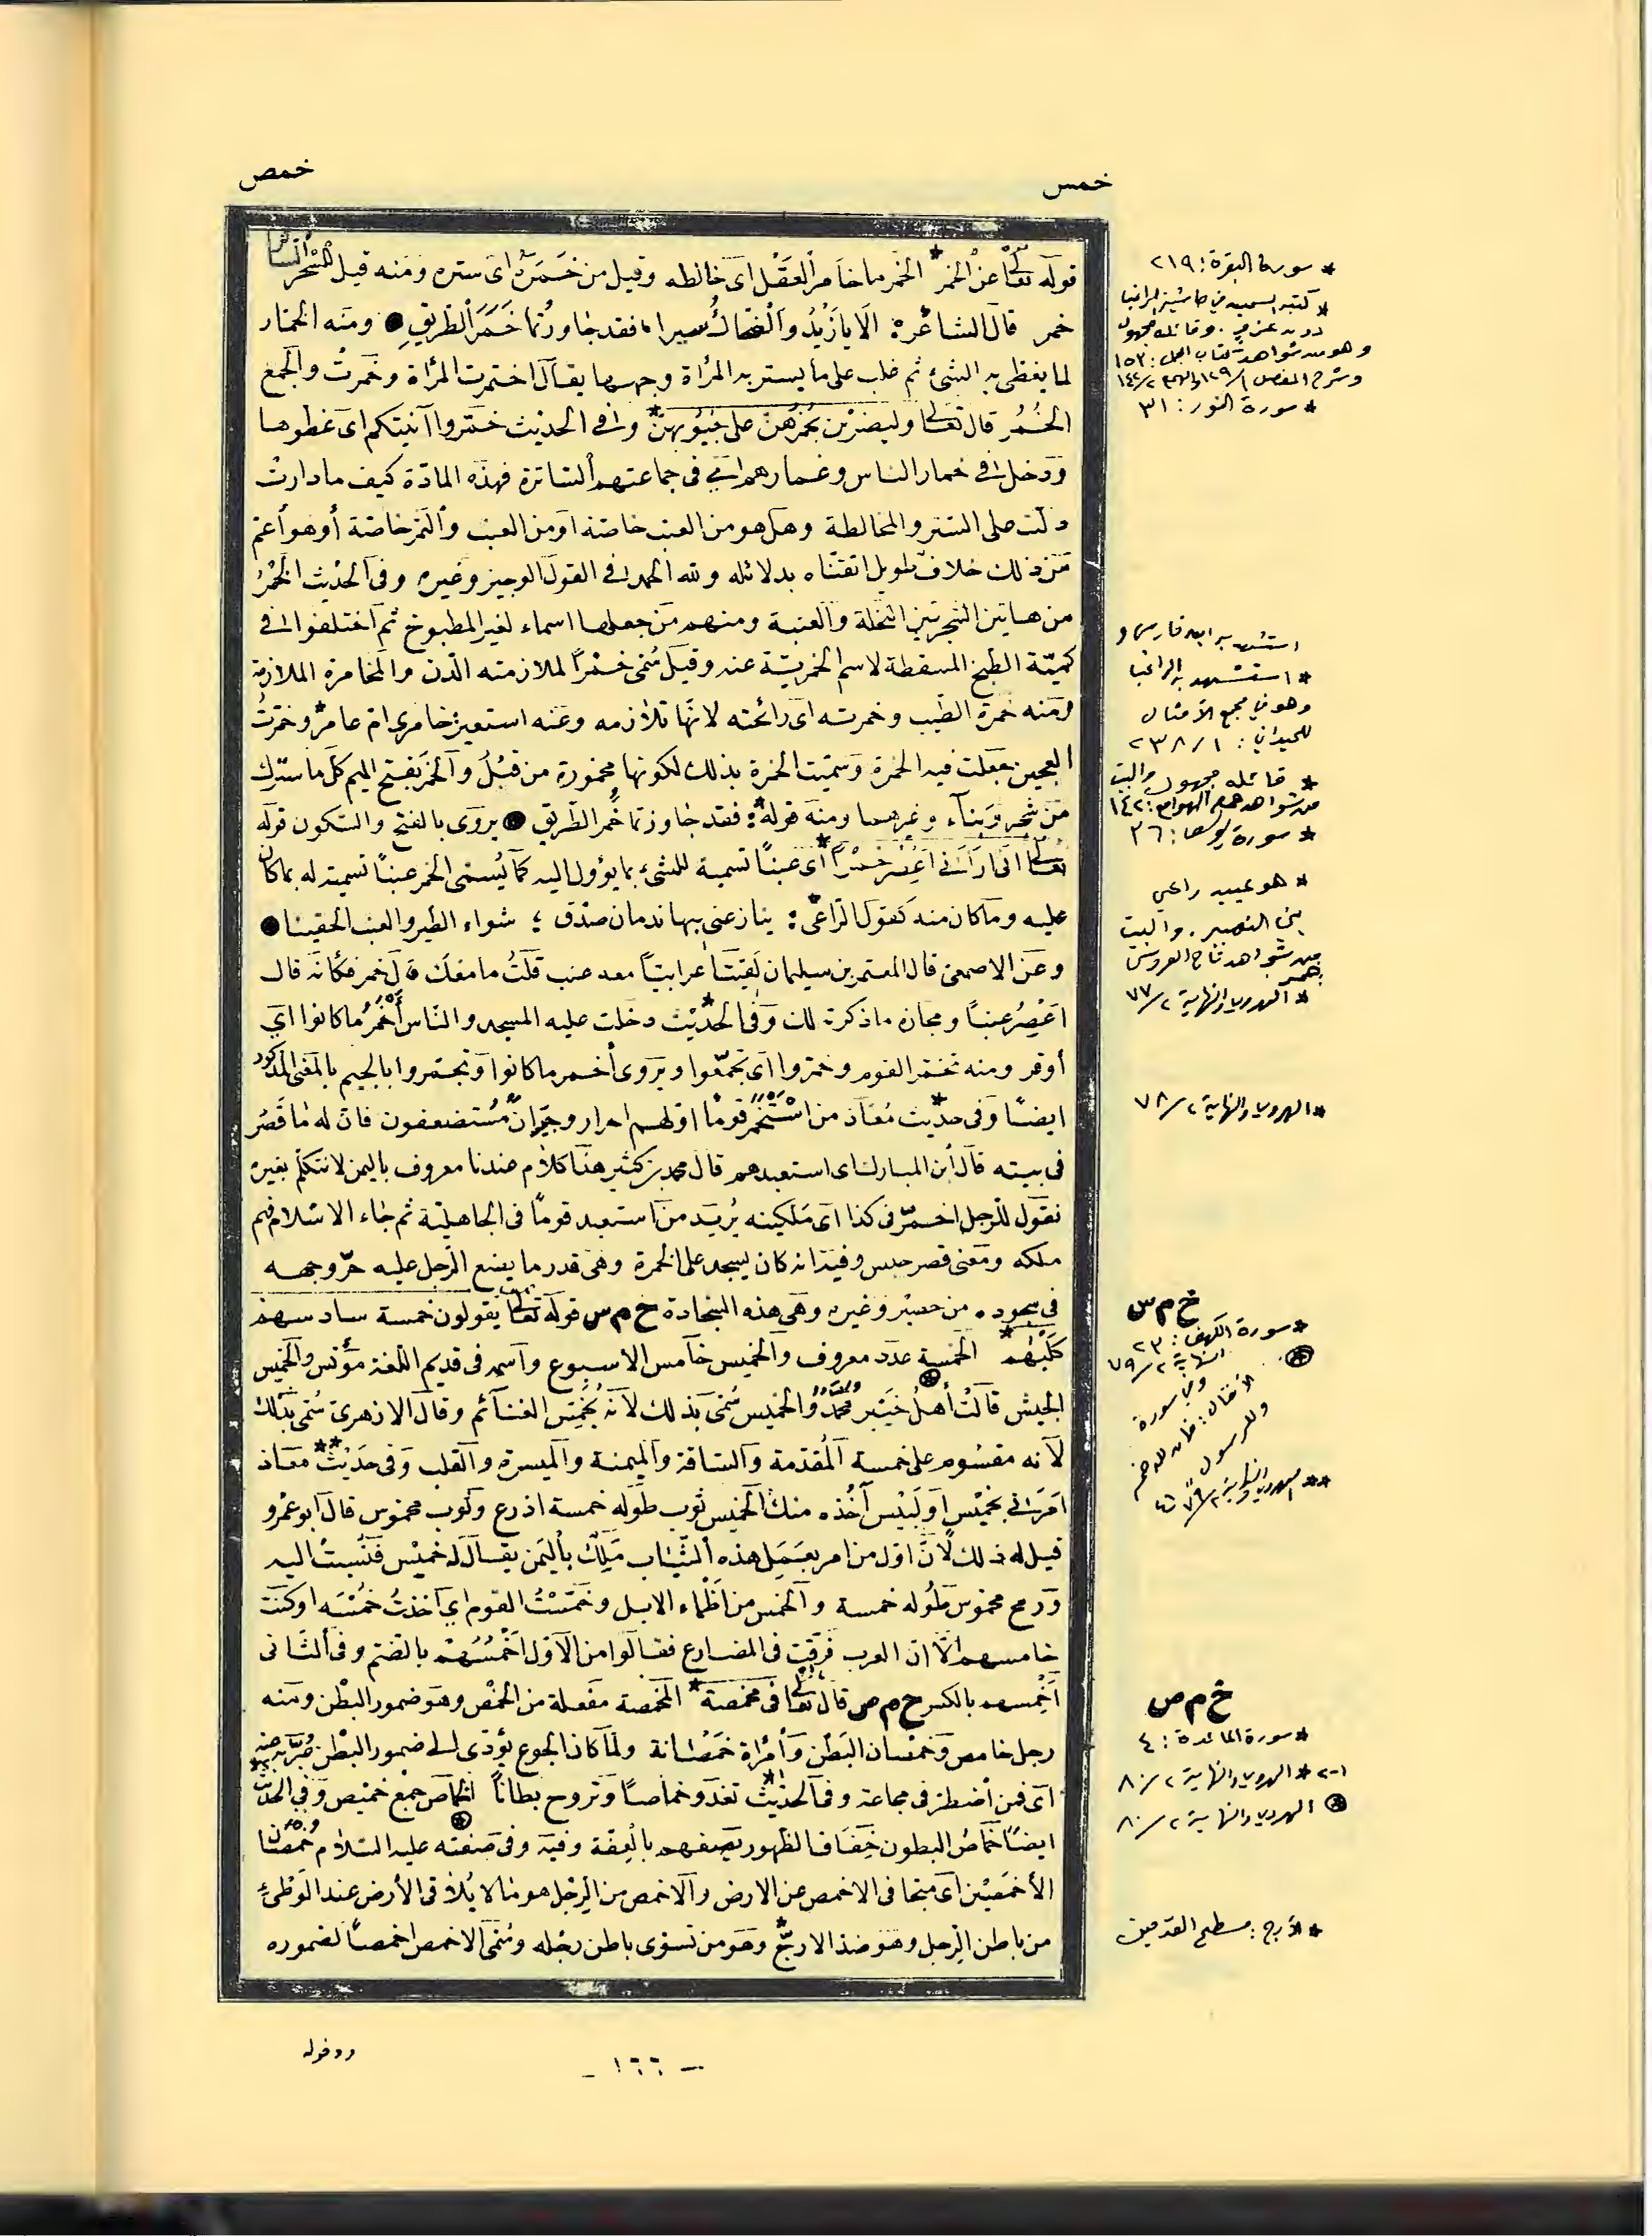 خمس
خمص
قوله تعالى عن الخمر * الخمر ما خامر العقل اى خالطه وقيل من خَمَرَهُ اى ستره ومنه قيل للشجر الساتر
خمر قال الشاعر * ألا يا زيد والضحاك سيرا فقد جاوزتما خمر الطريق ● ومنه الخمار
لما يغطى به الشئ ثم غلب على ما يستر به المرأة وجهها يقال اختمرت المرأة وخمرت والجمع
الخُمُر قال تعالى وليضربن بخمرهن على جيوبهن * وفى الحديث خمروا آنيتكم اى غطوها
ودخل فى خمار الناس وغمارهم اى فى جماعتهم الساترة فهذه المادة كيف ما دارت
دلت على الستر والمخالطة وهل هو من العنب خاصة او من العنب والتمر خاصة أو هو أعم
من ذلك خلاف طويل اتقناه بدلائله ولله الحمد فى القول الوجيز وغيره وفى الحديث الخمر
من هاتين الشجرتين النخلة والعنبة ومنهم من جعلها اسماء لغير المطبوخ ثم اختلفوا فى
كمية الطبخ المسقطة لاسم الخمرية عنه وقيل سمى خمرا لملازمته الدن والمخامرة الملازمة
ومنه خمرة الطيب وخمرته اى رائحته لانها تلازمه وعنه استعير خامرى ام عامر * وخمرت
العجين جعلت فيه الخمرة وسميت الخمرة بذلك لكونها مخمورة من قبل والخمر بفتح الميم كل ما سترك
من شجر وبناء وغيرهما ومنه قوله * فقد جاوزتما خمر الطريق ● يروى بالفتح والسكون قوله
تعالى انى أرانى اعصر خمرا * أى عنبا تسمية للشئ بما يؤول اليه كما يسمى الخمر عنبا تسمية له بما كان
عليه وما كان منه كقول الراعى * ينازعنى بها ندمان صدق ؛ شواء الطير والعنب الحقينا ●
وعن الاصمعى قال المعتمر بن سليمان لقيت أعرابيا معه عنب قلت ما معك قال خمر فكأنه قال
اعصر عنبا ومجازه ما ذكرت لك وفى الحديث * دخلت عليه المسجد والناس أخمر ما كانوا اي
أوفر ومنه تخمر القوم وخمروا اى تجمعوا ويروى أخمر ما كانوا وتجمروا بالجيم بالمعنى المذكور
ايضا وفى حديث * معاذ من استخمر قوما اولهم احرار وجيران مستضعفون فان له ما قصر
فى بيته قال ابن المبارك اى استعبدهم قال محمد بن كثير هذا كلام عندنا معروف باليمن لا نتكلم بغيره
نقول للرجل اخمرنى كذا اى ملكينه يريد من استعبد قوما فى الجاهلية ثم جاء الاسلام فهم
ملكه ومعنى قصر حبس وفيه انه كان يسجد على الخمرة وهى قدر ما يضع الرجل عليه حر وجهه
فى سجوده من حصير وغيره وهى هذه السجادة خ م س قوله تعالى يقولون خمسة سادسهم
كلبهم * الخمسة عدد معروف والخميس خامس الاسبوع واسمه فى قديم اللغة مؤنس والخميس
الجيش قالت أهل خيبر محمد والخميس سمى بذلك لأنه يخمس الغنائم وقال الازهرى سمى بذلك
لأنه مقسوم على خمسة المقدمة والساقة والميمنة والميسرة والقلب وفى حديث ** معاذ
امرنى بخميس او لبيس آخذه منك الخميس ثوب طوله خمسة اذرع وثوب مخموس قال ابو عمرو
قيل له ذلك لأن اول من امر بعمل هذه الثياب ملك باليمن يقال له خميس فنسبت اليه
ورمح مخموس طوله خمسة والخمس من أظماء الابل وخمست القوم اى أخذت خمسه او كنت
خامسهم الا ان العرب فرقت فى المضارع فقالوا من الأول اخمسهم بالضم وفى الثانى
اخمسهم بالكسر خ م ص قال تعالى فى مخمصة * المخمصة مفعلة من الخمص وهو ضمور البطن ومنه
رجل خامص وخمصان البطن وامرأة خمصانة ولما كان الجوع يؤدى الى ضمور البطن عبر به عنه
اى فمن اضطر فى مجاعة وفى الحديث * تغدو خماصا وتروح بطانا الخماص جمع خميص وفى الحديث
ايضا خماص البطون خفاف الظهور يصفهم بالعفة وفيه وفى صفته عليه السلام خمصان
الأخمصين اى متجافى الاخمص عن الارض والاخمص من الرجل هو ما لا يلاقى الأرض عند الوطئ
من باطن الرجل وهو ضد الارح * وهو من تستوى باطن رجله وسمى الاخمص اخمصا لضموره
* سورة البقرة : ٢١٩
* كتبه السمين في حاشية الراغب
دون عزو . وقائله مجهول
وهو من شواهد كتاب الجمل : ١٥٣
وشرح المفصل ١/١٢٩ والهمع ٢/١٤٢
* سورة النور : ٣١
استشهد به ابن فارس و
* استشهد به الراغب
وهو في مجمع الأمثال
للميداني : ١/ ٢٣٨
* قائله مجهول والبيت
من شواهد همع الهوامع : ١٤٢
* سورة يوسف : ٣٦
* هو عبيد راعي
بني النمير . والبيت
من شواهد تاج العروس
خمر
* الهروي والنهاية ٢/ ٧٧
* الهروي والنهاية ٢/ ٧٨
خ م س
* سورة الكهف : ٢٣
النهاية ٢/ ٧٩
وفي سورة
الأنفال : فان لله خمسه
وللرسول
** الهروي والنهاية ٢/ ٧٩
خ م ص
* سورة المائدة : ٤
١-٢ * الهروي والنهاية ٢/ ٨٠
الهروي والنهاية ٢/ ٨٠
* الأرح : مسطح القدمين
- ١٦٦ -
وقوله